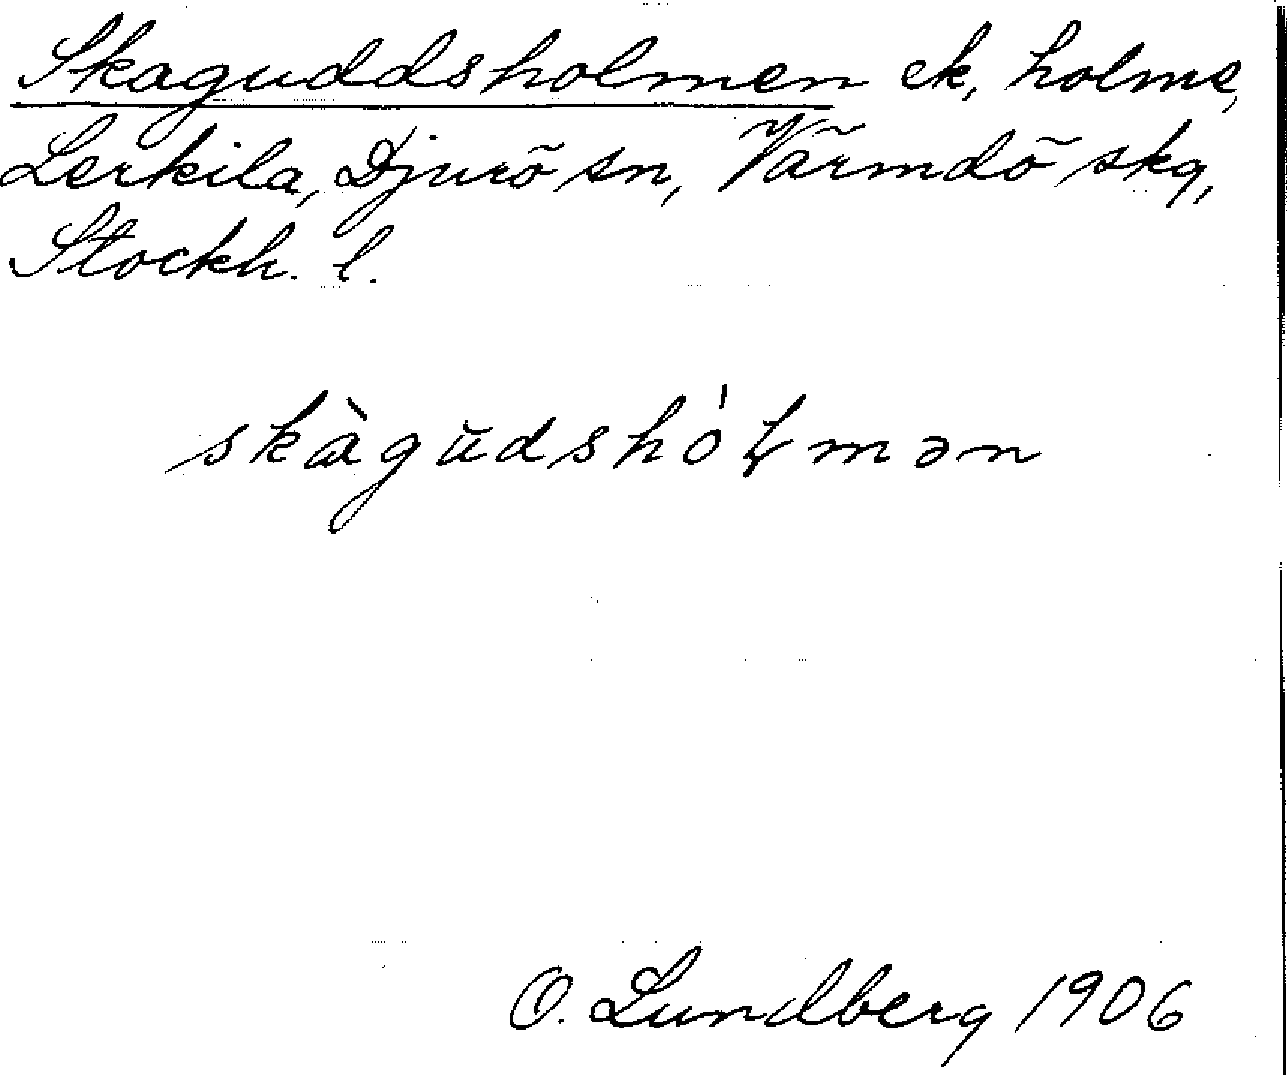 Skaguddsholmen ek, holme,
Lerkila, Djurö sn, Värmdö skg,
Stockh. l.
skàgŭdshò́łmən
O. Lundberg 1906